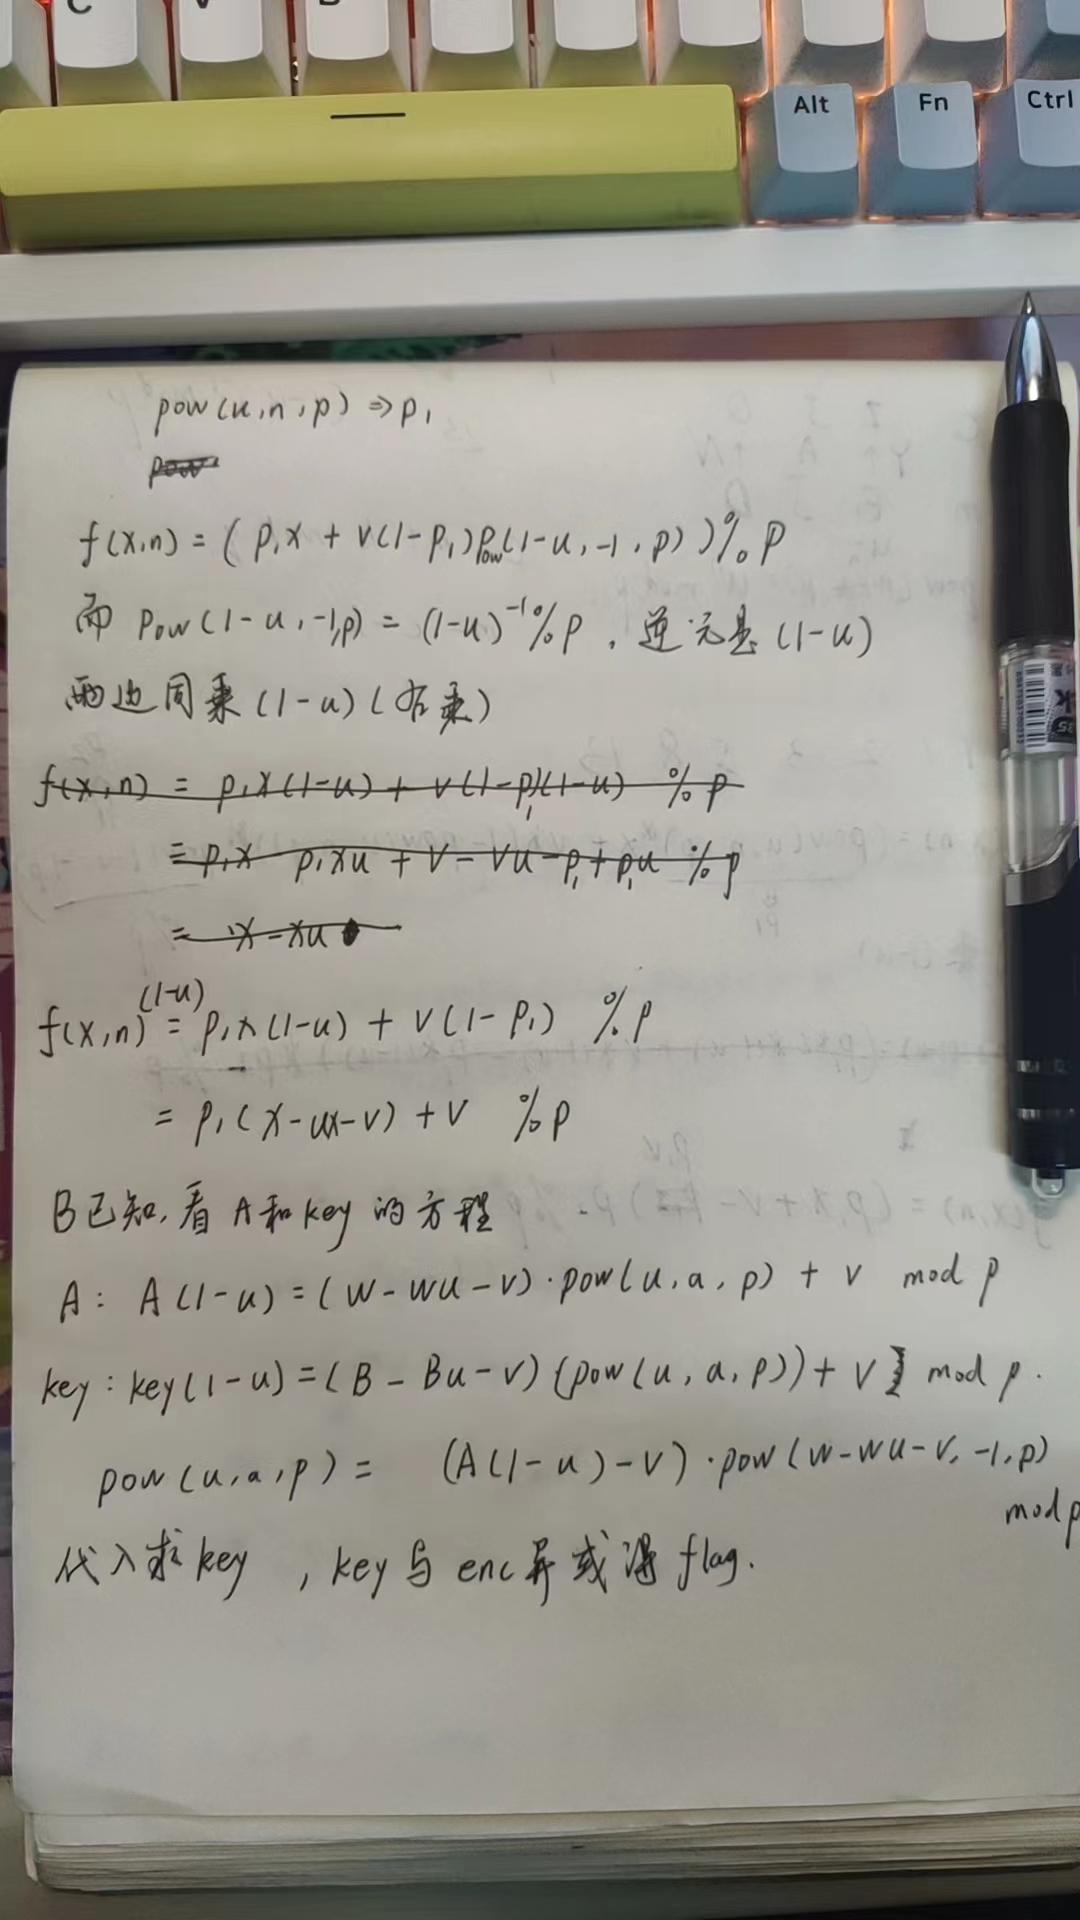 C V B
Alt Fn Ctrl
pow(u,n,p) ⇒ p₁
pow
f(x,n) = ( p₁x + v(1-p₁)pow(1-u,-1,p) )% p
而 pow(1-u,-1,p) = (1-u)⁻¹% p , 逆元是 (1-u)
两边同乘(1-u)(右乘)
f(x,n) = p₁x(1-u) + v(1-p₁)(1-u) % p
= p₁x - p₁xu + v - vu - p₁ + p₁u % p
= x - xu
f(x,n)(1-u) = p₁x(1-u) + v(1-p₁) % p
= p₁(x-ux-v) + v % p
B已知,看 A和key 的方程
A: A(1-u) = (w-wu-v)·pow(u,a,p) + v mod p
key: key(1-u) = (B-Bu-v){pow(u,a,p))+v} mod p.
pow(u,a,p) = (A(1-u)-v)·pow(w-wu-v,-1,p)
mod p
代入求key , key与enc异或得flag.